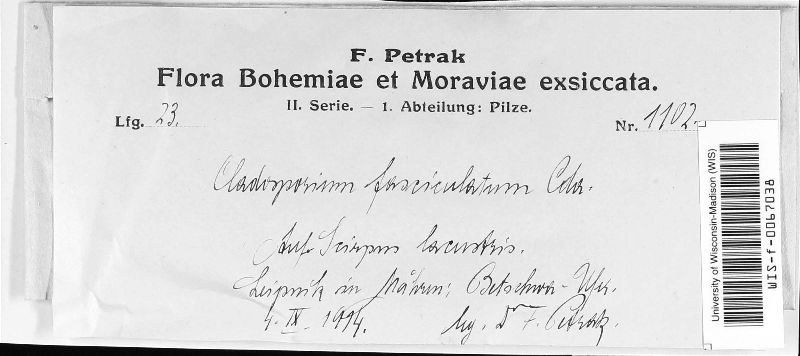 F. Petrak
Flora Bohemiae et Moraviae exsiccata.
II. Serie. — 1. Abteilung: Pilze.
Lfg. 23.
Nr. 1102.
Cladosporium fasciculatum Cda.
Auf Scirpus lacustris.
Leipnik in Mähren: Betschwa-Ufer.
4. IX. 1914. leg. Dr F. Petrak.
University of Wisconsin-Madison (WIS)
WIS-f-0067038